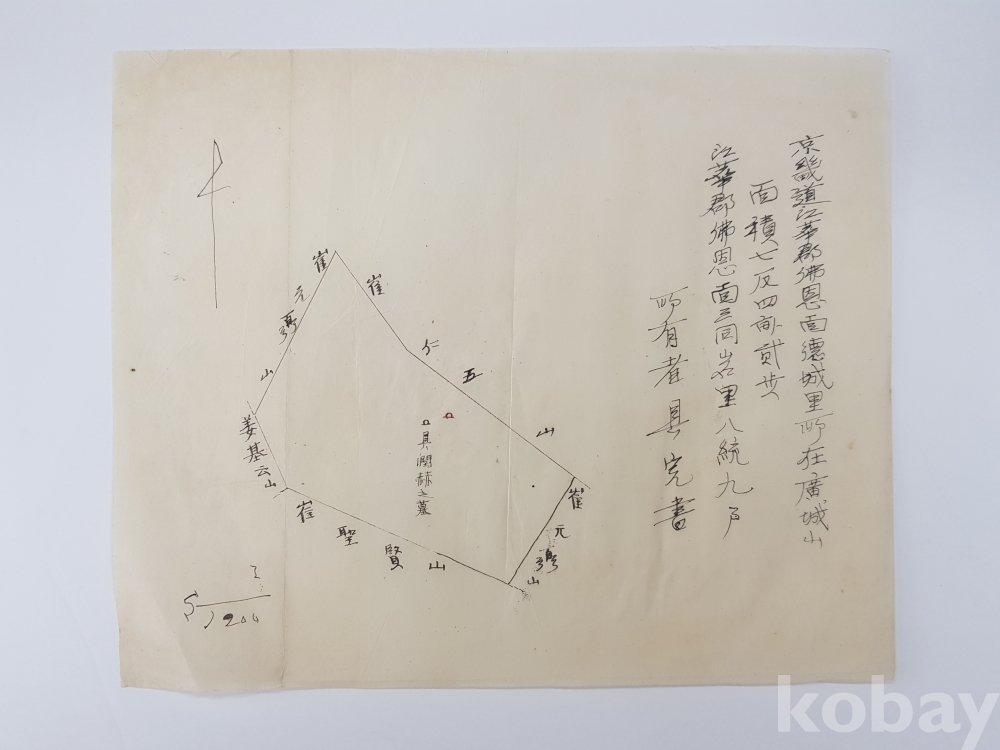 京畿道江華郡佛恩面德城里所在廣城山
面積七反四畝貳步
江華郡佛恩面三同岩里八統九戶
所有者具完書
崔元
山
崔仁五山
姜基云山
崔聖賢山
崔元
山
具
赫之墓
1200
kobay